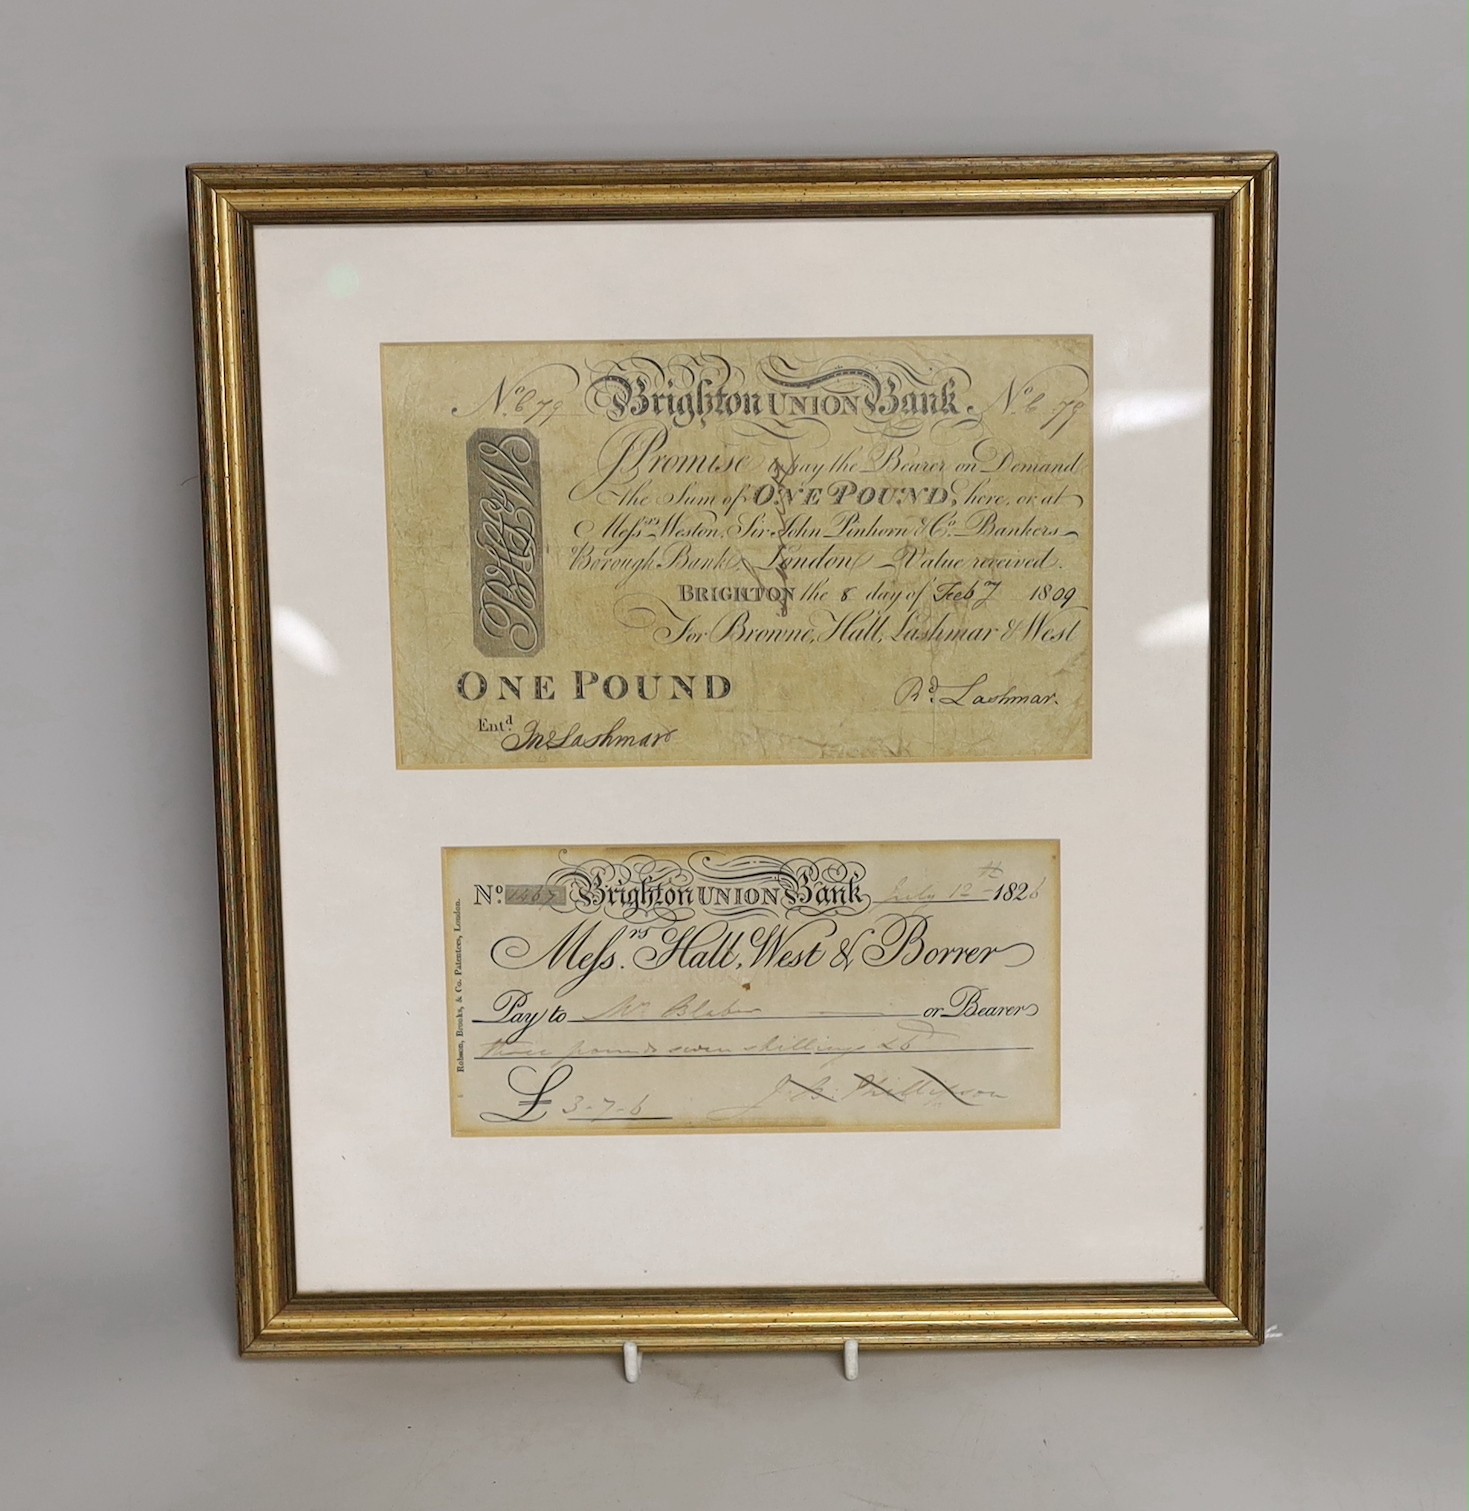 Brighton UNION Bank.
Promise to pay the Bearer on Demand
the Sum of ONE POUND, here, or at
Meſsrs. Weston, Sir John Pinhorn & Co. Bankers
Borough Bank, London Value received.
BRIGHTON the 8 day of Feby 1809
For Browne, Hall, Lashmar & West
BHL&W
ONE POUND
Rd. Lashmar.
Entd Jno Lashmar
No. 1467 Brighton UNION Bank July 12th 1826
Meſsrs. Hall, West & Borrer
Pay to Mr or Bearer
three pounds seven shillings & 6d
£ 3-7-6
Robson, Brooks, & Co. Patentees, London.